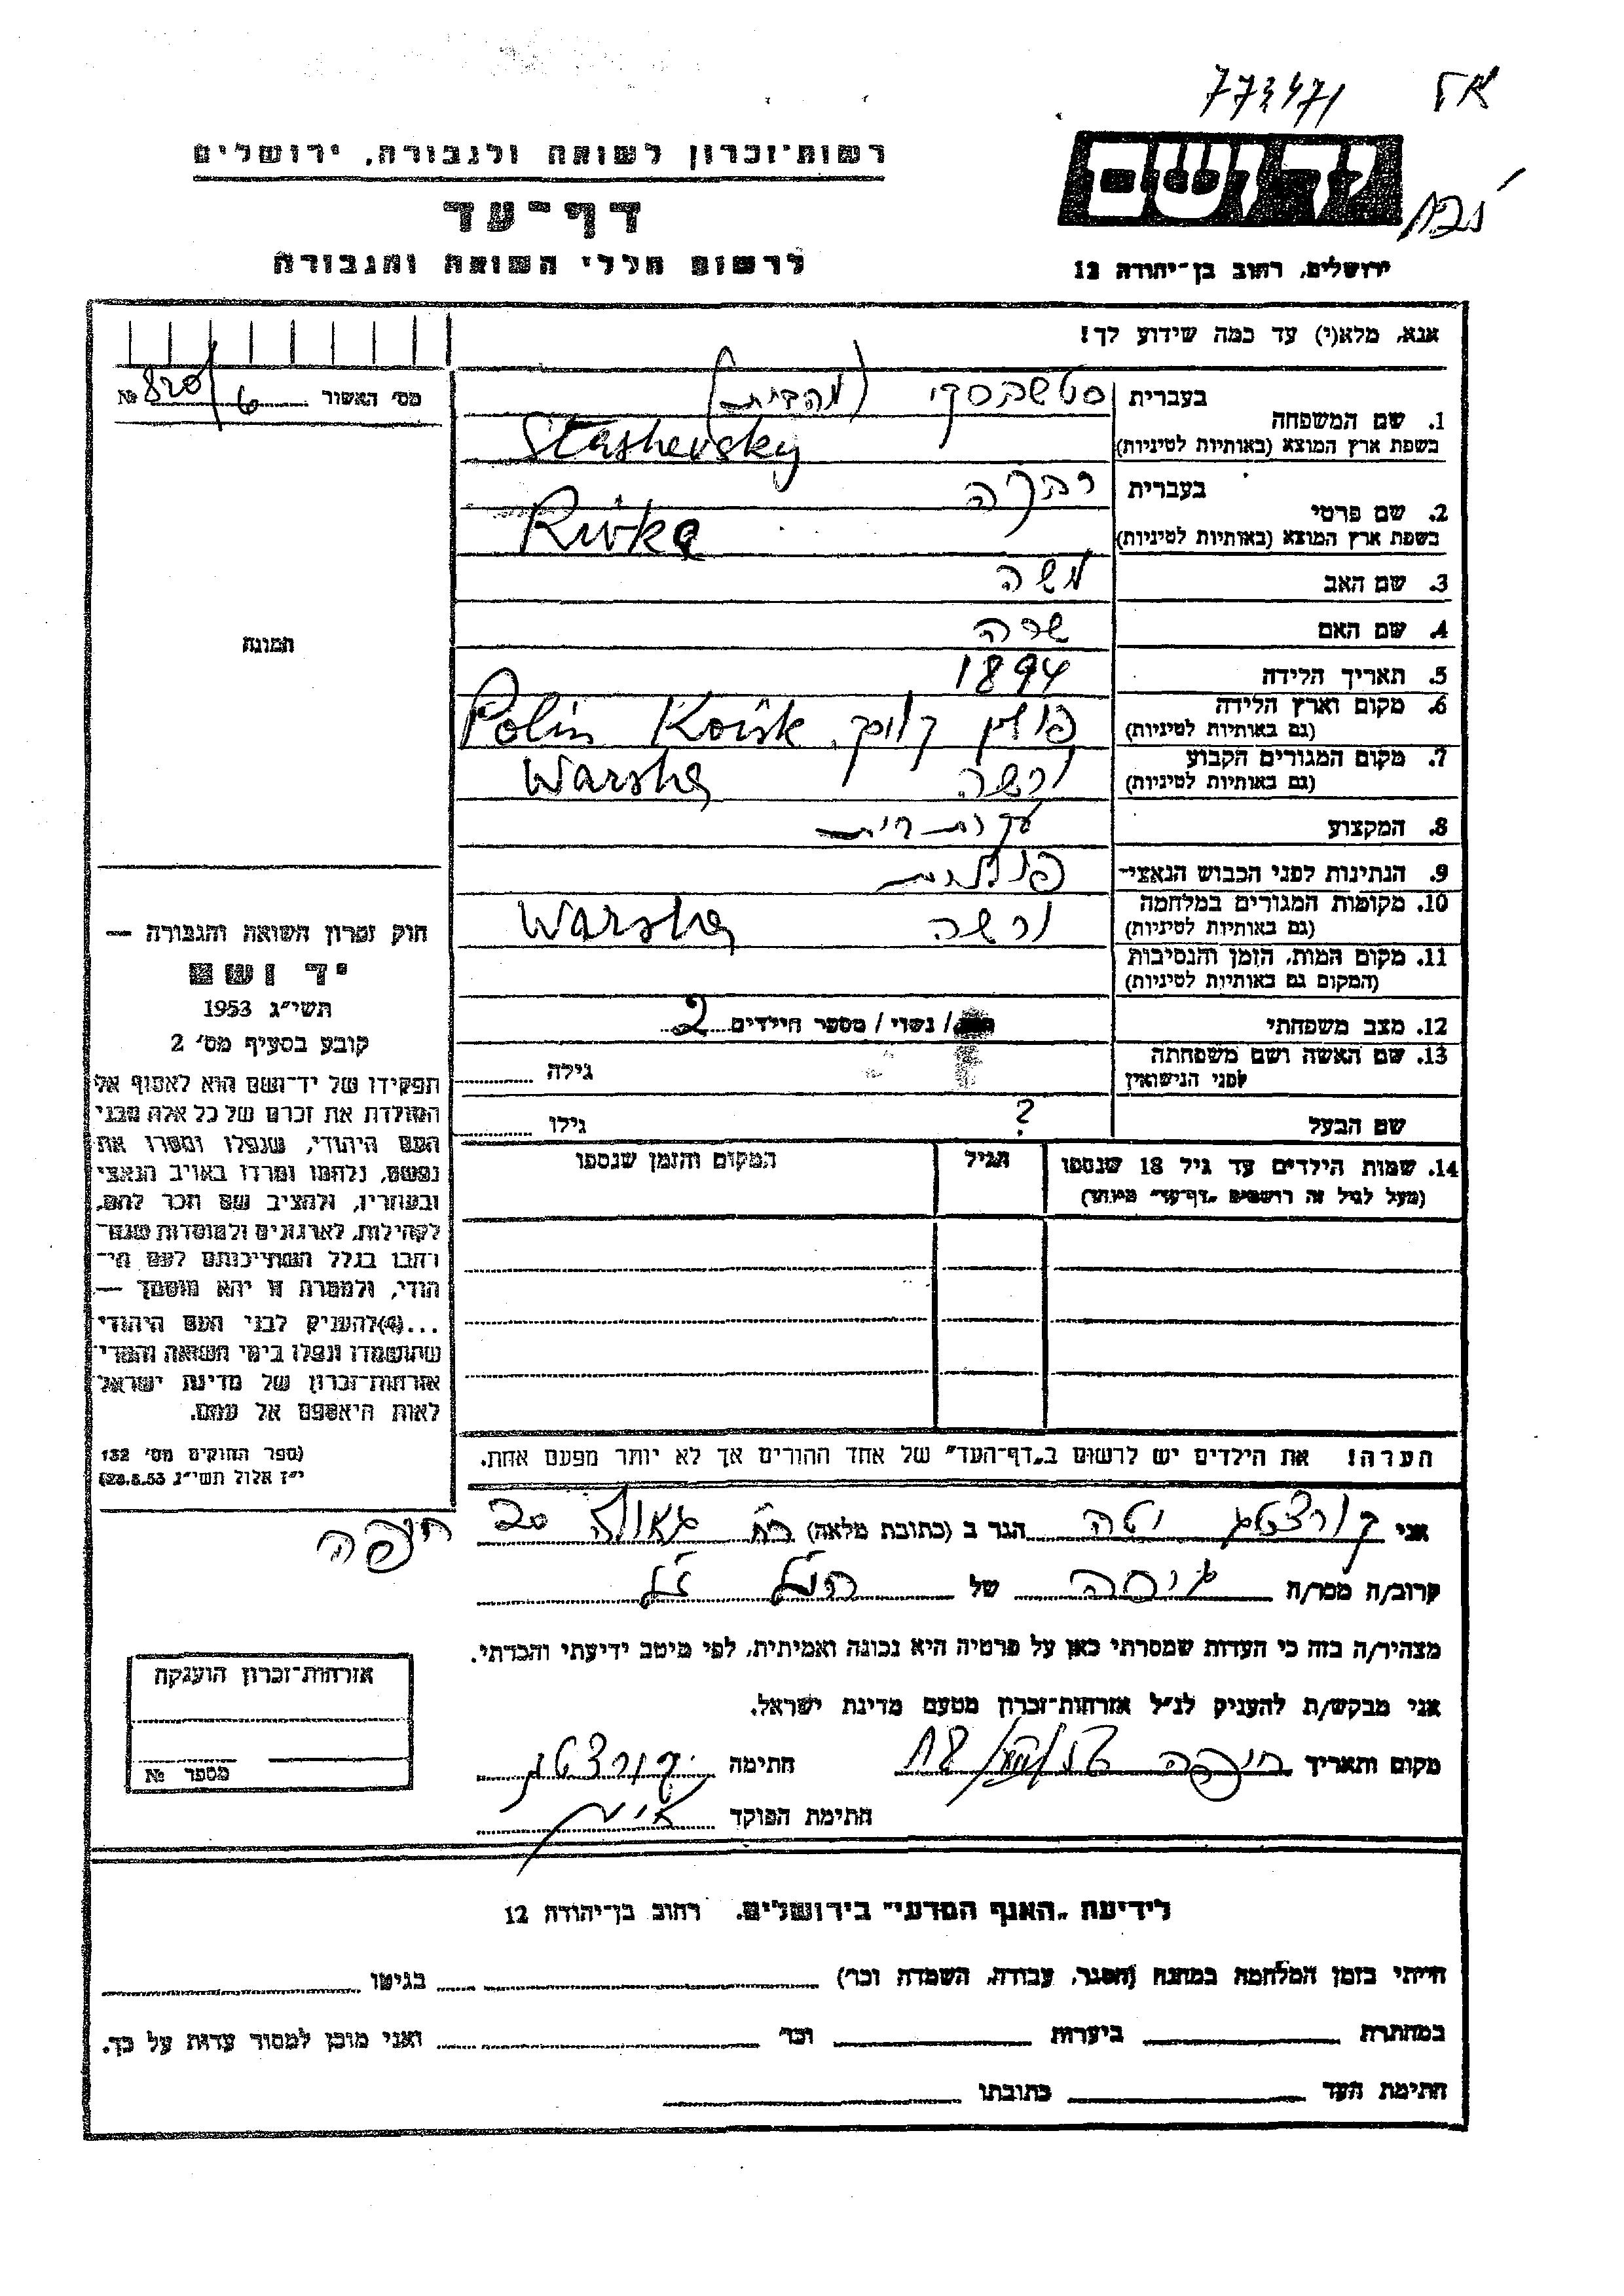 773471
יד ושם
ירושלים, רחוב בן־יהודה 12
רשות־זכרון לשואה ולגבורה, ירושלים
דף־עד
לרשום חללי השואה והגבורה
אנא, מלא(י) עד כמה שידוע לך!
מס׳ האשור 820/6 №
1. שם המשפחה
בעברית סטשבסקי
בשפת ארץ המוצא (באותיות לטיניות) Stashevsky
2. שם פרטי
בעברית רבקה
בשפת ארץ המוצא (באותיות לטיניות) Rivka
3. שם האב משה
4. שם האם שרה
5. תאריך הלידה 1894
6. מקום וארץ הלידה
(גם באותיות לטיניות) פולין Polin Koisk
7. מקום המגורים הקבוע
(גם באותיות לטיניות) ורשה Warsha
8. המקצוע עקרת־בית
9. הנתינות לפני הכבוש הנאצי־ פולנית
10. מקומות המגורים במלחמה
(גם באותיות לטיניות) ורשה Warsha
11. מקום המות, הזמן והנסיבות
(המקום גם באותיות לטיניות)
12. מצב משפחתי / נשוי / מספר הילדים 2
13. שם האשה ושם משפחתה
לפני הנישואין גילה
שם הבעל ? גילו
14. שמות הילדים עד גיל 18 שנספו
(מעל לגיל זה רושמים „דף־עד״ מיוחד)
הגיל
המקום והזמן שנספו
הערה! את הילדים יש לרשום ב„דף־העד״ של אחד ההורים אך לא יותר מפעם אחת.
תמונה
חוק זכרון השואה והגבורה —
יד ושם
תשי״ג 1953
קובע בסעיף מס׳ 2
תפקידו של יד־ושם הוא לאסוף אל
המולדת את זכרם של כל אלה מבני
העם היהודי, שנפלו ומסרו את
נפשם, נלחמו ומרדו באויב הנאצי
ובעוזריו, ולהציב שם וזכר להם,
לקהילות, לארגונים ולמוסדות שנח־
רבו בגלל השתייכותם לעם הי־
הודי, ולמטרה זו יהא מוסמך —
...(4)להעניק לבני העם היהודי
שהושמדו ונפלו בימי השואה והמרי
אזרחות־זכרון של מדינת ישראל
לאות היאספם אל עמם.
(ספר החוקים מס׳ 132
י״ז אלול תשי״ג 28.8.53)
אני קורצטג יטה הגר ב (כתובת מלאה) גאולה 20 חיפה
קרוב/ה מכר/ה גיסה של הנ״ל
מצהיר/ה בזה כי העדות שמסרתי כאן על פרטיה היא נכונה ואמיתית, לפי מיטב ידיעתי והכרתי.
אני מבקש/ת להעניק לנ״ל אזרחות־זכרון מטעם מדינת ישראל.
מקום ותאריך חיפה חתימה
חתימת הפוקד
אזרחות־זכרון הוענקה
מספר №
לידיעת „האגף המדעי״ בירושלים, רחוב בן־יהודה 12
הייתי בזמן המלחמה במחנה (הסגר, עבודה, השמדה וכו׳) בגיטו
במחתרת ביערות וכו׳ ואני מוכן למסור עדות על כך.
חתימת העד כתובתו